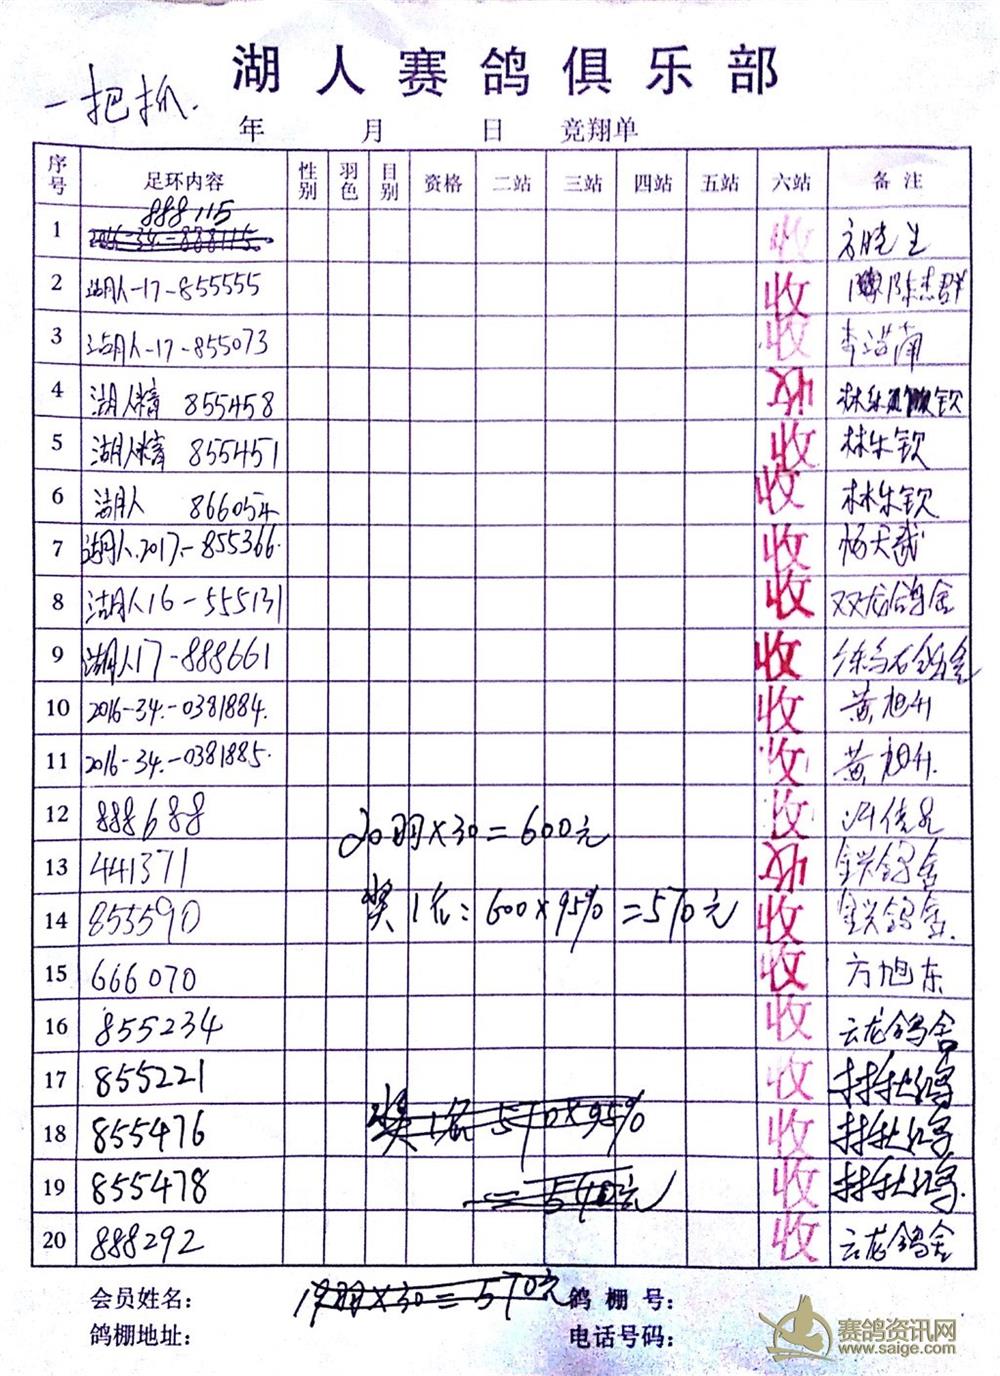 湖人赛鸽俱乐部
一把抓.
年 月 日 竞翔单
序号 足环内容 性别 羽色 目别 资格 二站 三站 四站 五站 六站 备注
888115
1 2016-34-888115 收 方晓生
2 湖人-17-855555 收 陈杰群
3 湖人-17-855073 收
4 湖人精 855458 收 林乐钦
5 湖人精 855451 收 林乐钦
6 湖人 866054 收 林乐钦
7 湖人.2017.-855366. 收 杨天武
8 湖人16-555131 收 双龙鸽舍
9 湖人17-888661 收
10 2016-34.-0381884. 收 黄旭升
11 2016-34.-0381885. 收 黄旭升.
12 888688 收
20羽×30=600元
13 441371 收 鸽舍
14 855590 奖1名:600×95%=570元 收 鸽舍.
15 666070 收 方旭东
16 855234 收 云龙鸽舍
17 855221 收
18 855476 奖1名 570×95% 收
19 855478 =540元 收
20 888292 收 云龙鸽舍
会员姓名: 19羽×30=570元 鸽棚号:
鸽棚地址: 电话号码:
赛鸽资讯网
www.saige.com